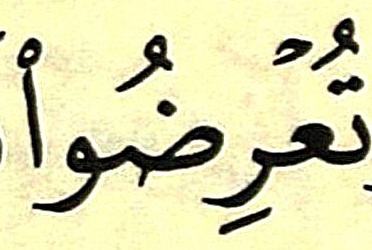 تُعْرِضُوا۟